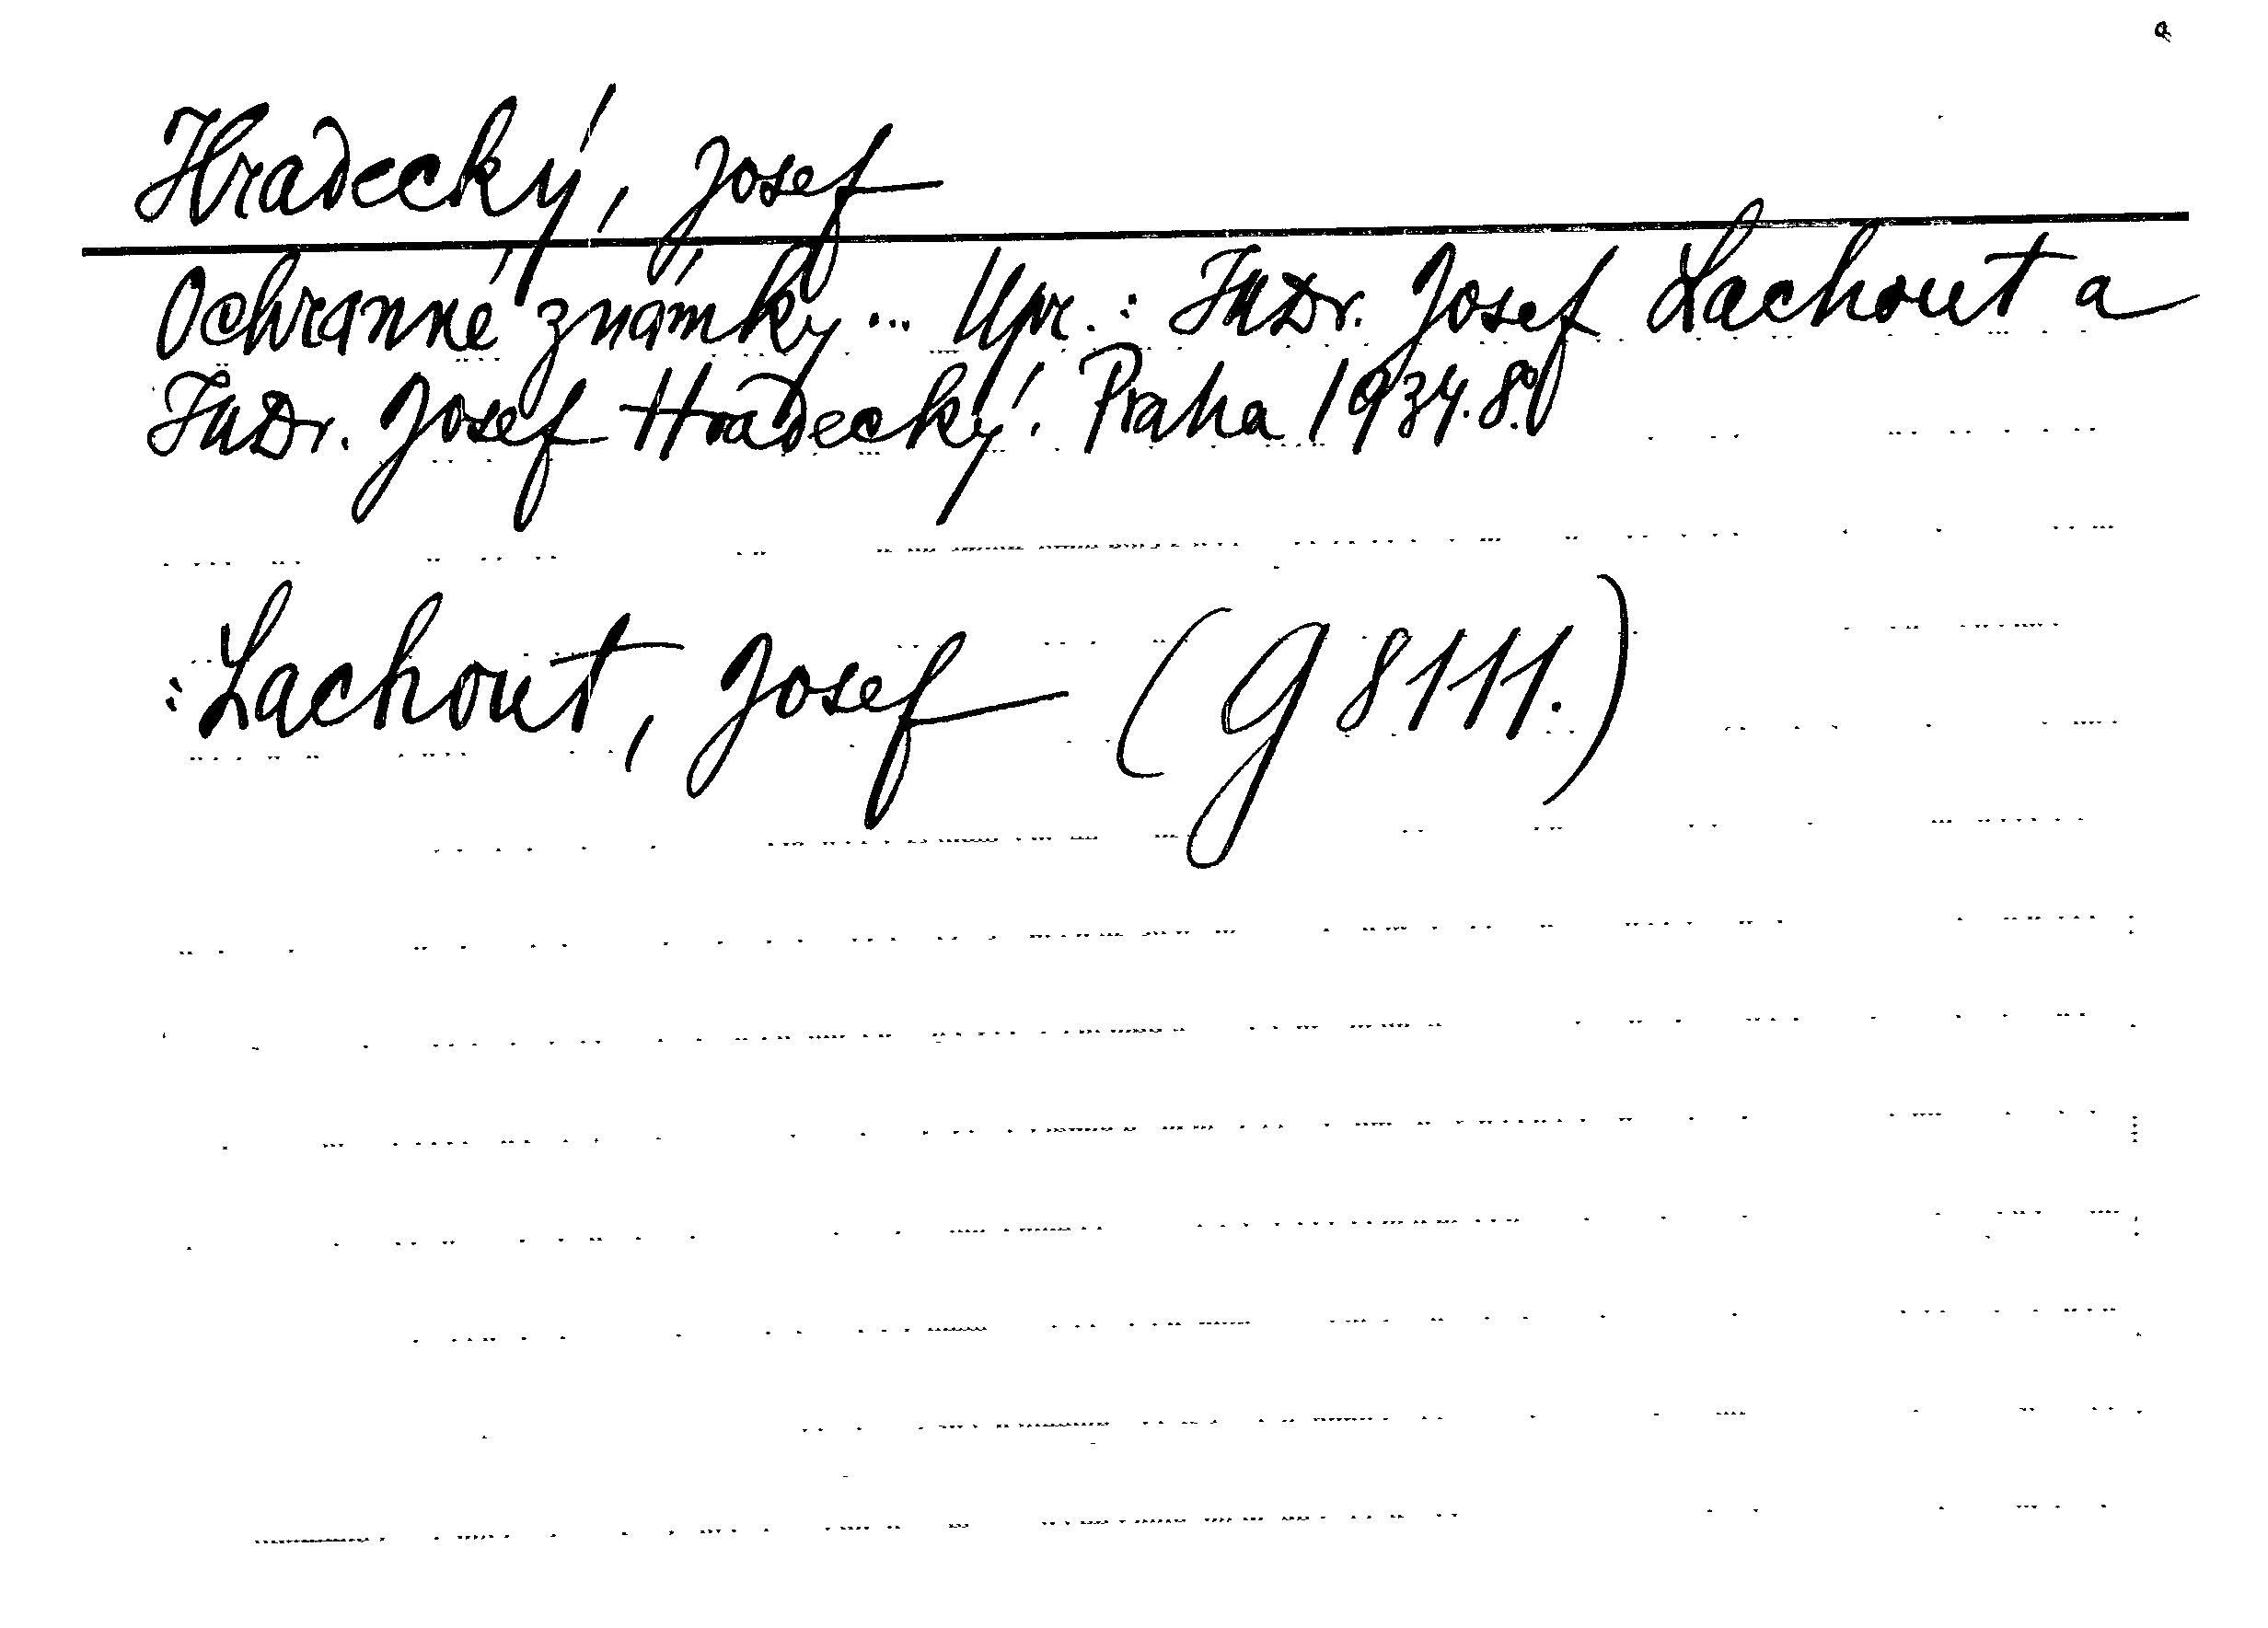 Hradecký, Josef
Ochranné známky... Upr.: JUDr. Josef Lachout a
JUDr. Josef Hradecký. Praha 1934. 8°
: Lachout, Josef (G 8111.)